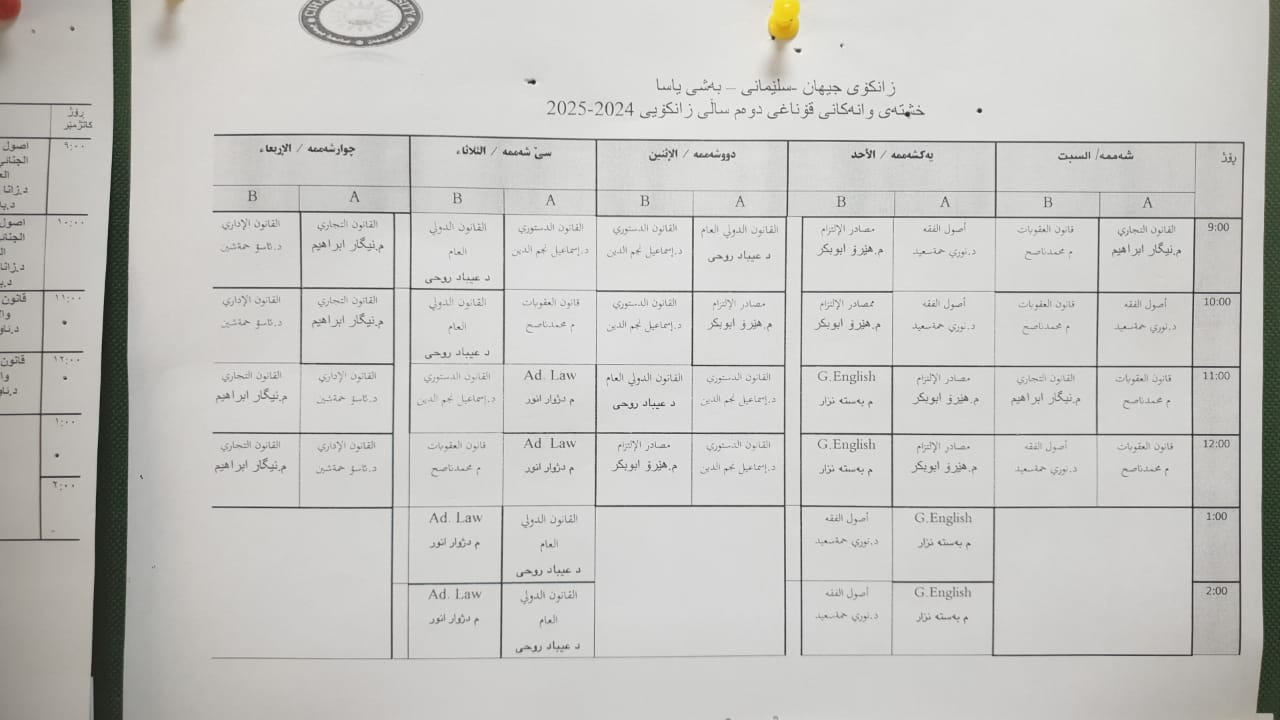 زانكۆی جیهان -سلێمانی – بەشی یاسا
خشتەی وانەكانی قۆناغی دووەم ساڵی زانكۆیی 2024-2025
ڕۆژ
شەممە/ السبت
یەكشەممە / الأحد
دووشەممە / الإثنین
سێ شەممە / الثلاثاء
چوارشەممە / الإربعاء
A B A B A B A B A B
9:00
القانون التجاري
م.نیگار ابراهیم
قانون العقوبات
م محمدناصح
أصول الفقه
د.نوري حمةسعید
مصادر الإلتزام
م.هێرۆ ابوبكر
القانون الدولي العام
د عیباد روحی
القانون الدستوري
د.إسماعیل نجم الدین
القانون الدستوري
د.إسماعیل نجم الدین
القانون الدولي
العام
د عیباد روحی
القانون التجاري
م.نیگار ابراهیم
القانون الإداري
د.ئاسۆ حمةشین
10:00
أصول الفقه
د.نوري حمةسعید
قانون العقوبات
م محمدناصح
أصول الفقه
د.نوري حمةسعید
مصادر الإلتزام
م.هێرۆ ابوبكر
مصادر الإلتزام
م.هێرۆ ابوبكر
القانون الدستوري
د.إسماعیل نجم الدین
قانون العقوبات
م محمدناصح
القانون الدولي
العام
د عیباد روحی
القانون التجاري
م.نیگار ابراهیم
القانون الإداري
د.ئاسۆ حمةشین
11:00
قانون العقوبات
م محمدناصح
القانون التجاري
م.نیگار ابراهیم
مصادر الإلتزام
م.هێرۆ ابوبكر
G.English
م بەستە نزار
القانون الدستوري
د.إسماعیل نجم الدین
القانون الدولي العام
د عیباد روحی
Ad. Law
م دژوار انور
القانون الدستوري
د.إسماعیل نجم الدین
القانون الإداري
د.ئاسۆ حمةشین
القانون التجاري
م.نیگار ابراهیم
12:00
قانون العقوبات
م محمدناصح
أصول الفقه
د.نوري حمةسعید
مصادر الإلتزام
م.هێرۆ ابوبكر
G.English
م بەستە نزار
القانون الدستوري
د.إسماعیل نجم الدین
مصادر الإلتزام
م.هێرۆ ابوبكر
Ad. Law
م دژوار انور
قانون العقوبات
م محمدناصح
القانون الإداري
د.ئاسۆ حمةشین
القانون التجاري
م.نیگار ابراهیم
1:00
G.English
م بەستە نزار
أصول الفقه
د.نوري حمةسعید
القانون الدولي
العام
د عیباد روحی
Ad. Law
م دژوار انور
2:00
G.English
م بەستە نزار
أصول الفقه
د.نوري حمةسعید
القانون الدولي
العام
د عیباد روحی
Ad. Law
م دژوار انور
ڕۆژ
كاتژمێر
٩:٠٠
اصول
د.زانا
١٠:٠٠
اصول
د.زانا
١١:٠٠
قانون
١٢:٠٠
قانون
١:٠٠
٢:٠٠